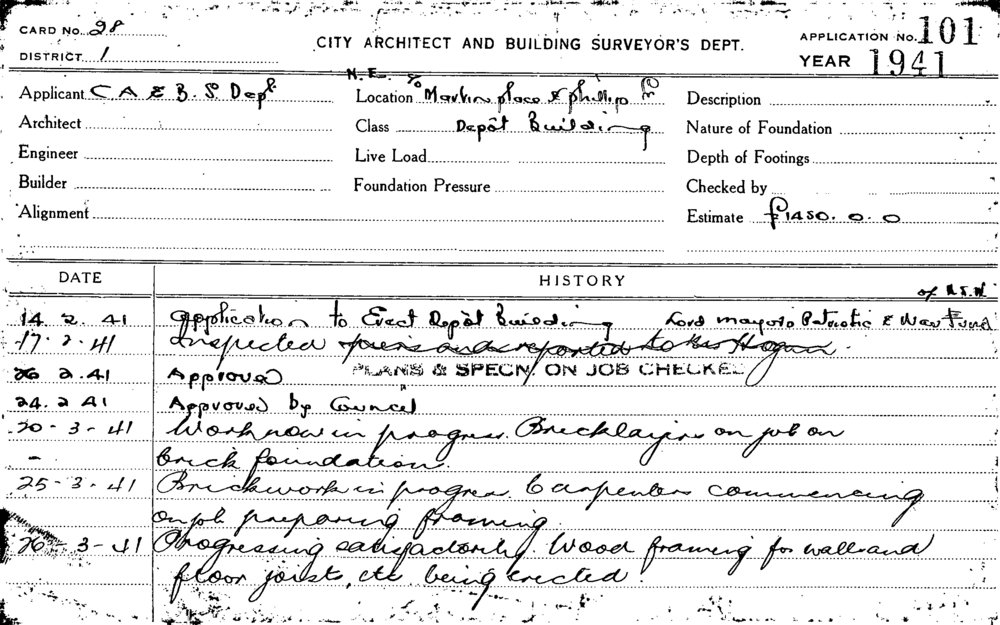 CARD No. 28
DISTRICT 1
CITY ARCHITECT AND BUILDING SURVEYOR'S DEPT.
APPLICATION No. 101
YEAR 1941
Applicant C A & B. S. Dept.
N.E. Cr
Location Martin place & phillip
Description
Architect
Class Depôt Building
Nature of Foundation
Engineer
Live Load
Depth of Footings
Builder
Foundation Pressure
Checked by
Alignment
Estimate £1450. 0. 0
DATE
HISTORY
of N.S.W.
14. 2. 41 Application to Erect Depôt Building Lord Mayors Patriotic & War Fund
17. 2. 41 Inspected and reported to Mr Hogan.
PLANS & SPECN. ON JOB CHECKED
26 2. 41 Approved
24. 2 41 Approved by Council
20 - 3 - 41 Work now in progress. Bricklayers on job on
brick foundation.
25 - 3 - 41 Brickwork in progress. Carpenters commencing
on job preparing framing.
26 - 3 - 41 Progressing satisfactorily. Wood framing for wall and
floor joist, etc being erected.